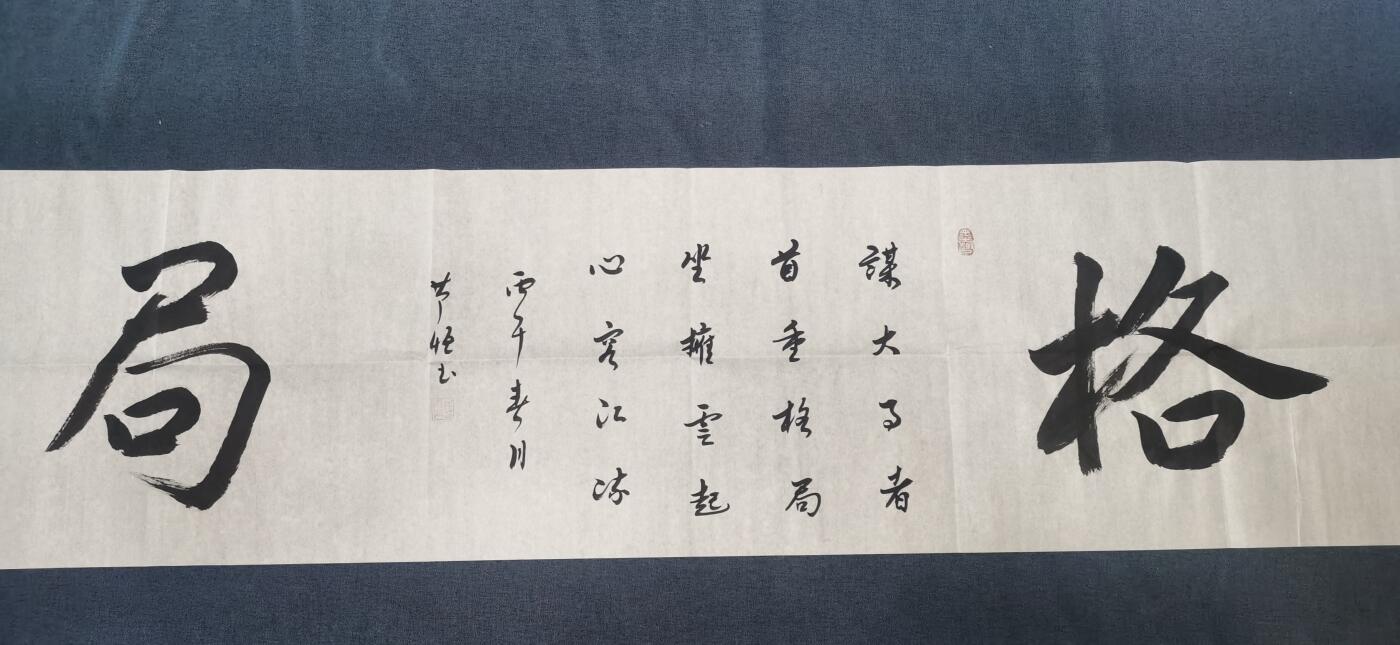 格
謀大事者
首重格局
坐擁雲起
心容江流
丙午春月
書
局